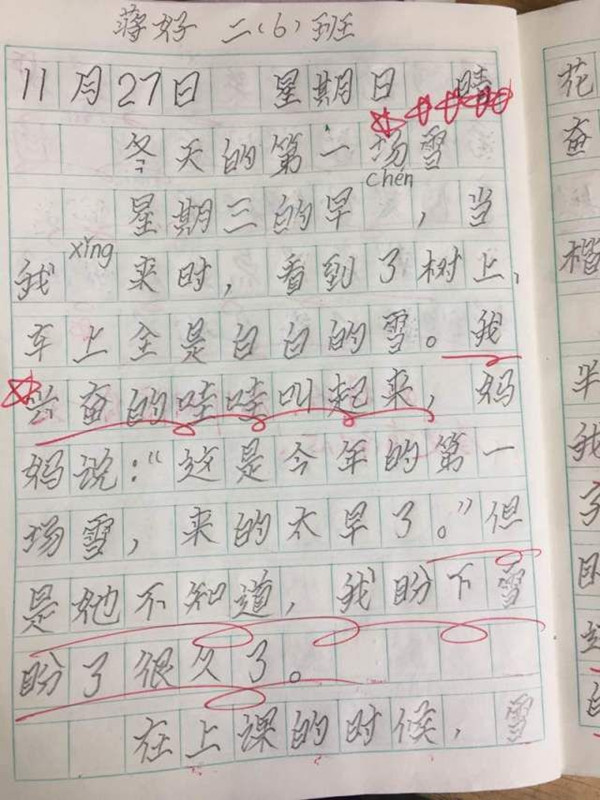 蒋好 二(6)班
11月27日 星期日 晴
冬天的第一场雪
星期三的早chén,当
我xǐng来时,看到了树上、
车上全是白白的雪。我
兴奋的哇哇叫起来,妈
妈说:“这是今年的第一
场雪,来的太早了。”但
是她不知道,我盼下雪
盼了很久了。
在上课的时候,雪
花
奋
半
我